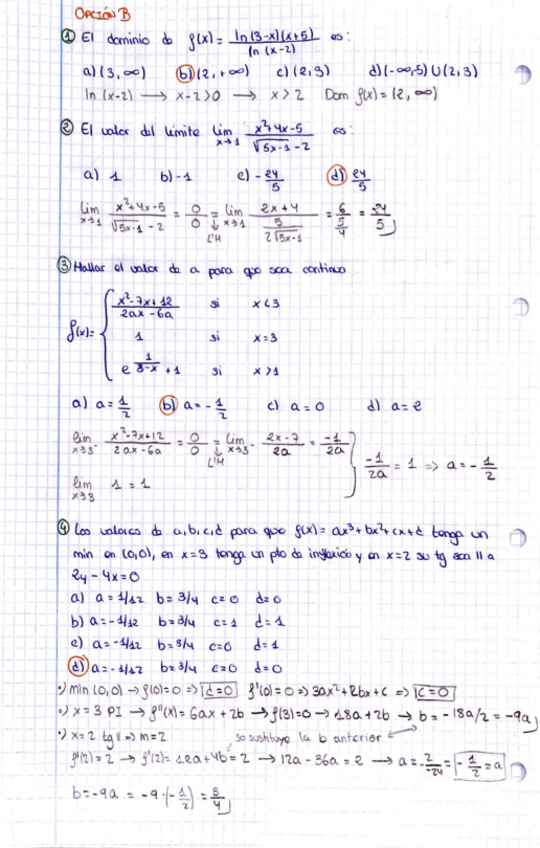 OPCIÓN B
① El dominio de f(x) = ln(3-x)(x+5) / ln(x-2) es:
a) (3, ∞) b) (2, +∞) c) (2, 3) d) (-∞, 5) ∪ (2, 3)
ln (x-2) → x-2>0 → x>2 Dom f(x) = (2, ∞)
② El valor del límite lim x→1 x²+4x-5 / √5x-1 - 2 es:
a) 1 b) -1 c) -24/5 d) 24/5
lim x→1 x²+4x-5 / √5x-1 - 2 = 0/0 = L'H lim x→1 2x+4 / 5/2√5x-1 = 6 / 5/4 = 24/5
③ Hallar el valor de a para que sea continua
f(x) = { x²-7x+12 / 2ax-6a si x<3
1 si x=3
e^(1/3-x) + 1 si x>1
a) a = 1/2 b) a = -1/2 c) a = 0 d) a = 2
lim x→3⁻ x²-7x+12 / 2ax-6a = 0/0 = L'H lim x→3⁻ 2x-7 / 2a = -1/2a } -1/2a = 1 ⇒ a = -1/2
lim x→3 1 = 1
④ Los valores de a,b,c,d para que f(x) = ax³+bx²+cx+d tenga un
min en (0,0), en x=3 tenga un pto de inflexión y en x=2 su tg sea // a
2y - 4x = 0
a) a = 1/12 b = 3/4 c = 0 d = 0
b) a = -1/12 b = 3/4 c = 1 d = 1
c) a = -1/12 b = 3/4 c = 0 d = 1
d) a = -1/12 b = 3/4 c = 0 d = 0
·) min (0,0) → f(0) = 0 ⇒ d = 0 f'(0) = 0 ⇒ 3ax²+2bx+c ⇒ c = 0
·) x = 3 PI → f''(x) = 6ax + 2b → f(3) = 0 → 18a + 2b → b = -18a/2 = -9a
·) x = 2 tg // ⇒ m = 2 so sustituyo la b anterior
f'(2) = 2 → f'(2) = 12a + 4b = 2 → 12a - 36a = 2 → a = 2/-24 = -1/2 = a
b = -9a = -9·(-1/2) = 3/4